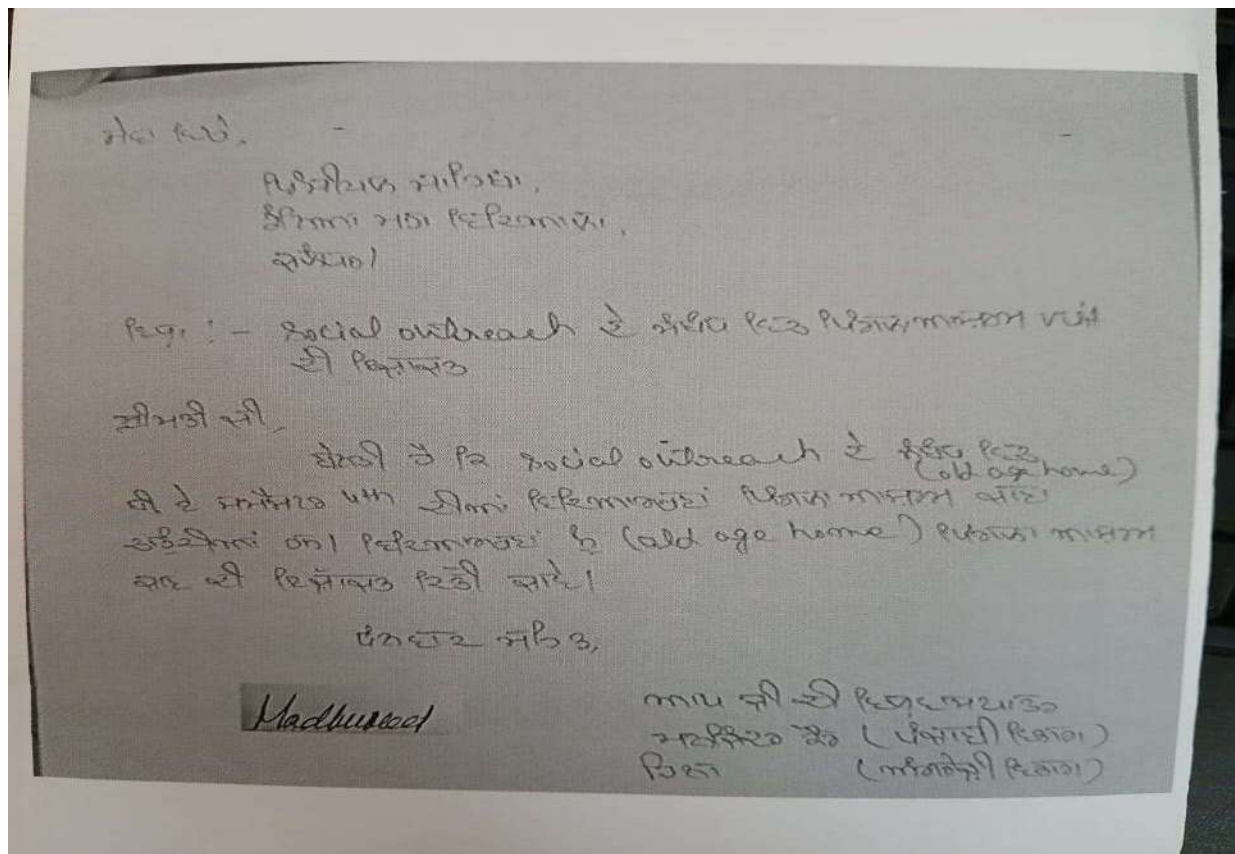 ਸੇਵਾ ਵਿਖੇ,
ਪ੍ਰਿੰਸੀਪਲ ਸਾਹਿਬਾ,
ਮਹਾ ਵਿਦਿਆਲਾ,
ਜਲੰਧਰ।
ਵਿਸ਼ਾ :- Social outreach ਦੇ ਸੰਬੰਧ ਵਿਚ ਪਿੰਗਲਾ ਆਸ਼ਰਮ ਜਾਣ
ਦੀ ਇਜਾਜ਼ਤ
ਸ੍ਰੀਮਤੀ ਜੀ,
ਬੇਨਤੀ ਹੈ ਕਿ Social outreach ਦੇ ਸੰਬੰਧ ਵਿਚ
(old age home)
ਬੀ ਏ ਸਮੈਸਟਰ ਦੀਆਂ ਵਿਦਿਆਰਥਣਾਂ ਪਿੰਗਲਾ ਆਸ਼ਰਮ ਜਾਣਾ
ਚਾਹੁੰਦੀਆਂ ਹਨ। ਵਿਦਿਆਰਥਣਾਂ ਨੂੰ (old age home) ਪਿੰਗਲਾ ਆਸ਼ਰਮ
ਜਾਣ ਦੀ ਇਜਾਜ਼ਤ ਦਿੱਤੀ ਜਾਵੇ।
ਧੰਨਵਾਦ ਸਹਿਤ,
ਆਪ ਜੀ ਦੀ ਵਿਸ਼ਵਾਸਪਾਤਰ
ਕੌਰ (ਪੰਜਾਬੀ ਵਿਭਾਗ)
(ਅੰਗਰੇਜ਼ੀ ਵਿਭਾਗ)